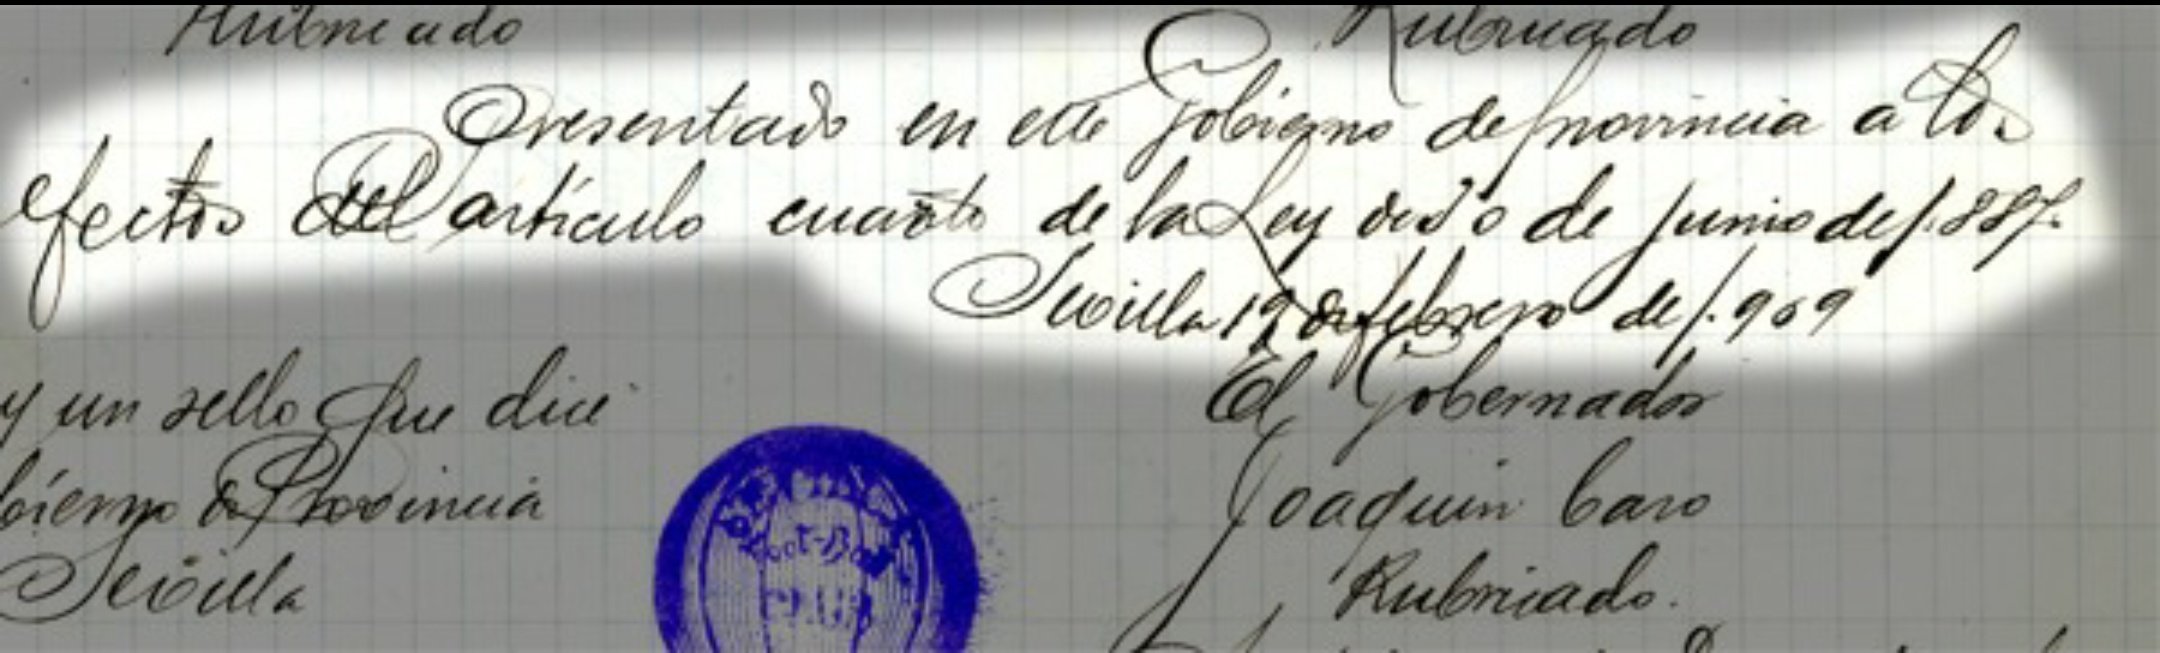 Rubricado Rubricado
Presentado en este Gobierno de provincia a los
efectos del artículo cuarto de la Ley de 30 de junio de 1.887.
Sevilla 19 de febrero de 1.909
y un sello que dice El Gobernador
bierno de Provincia Joaquin Caro
Sevilla Rubricado.